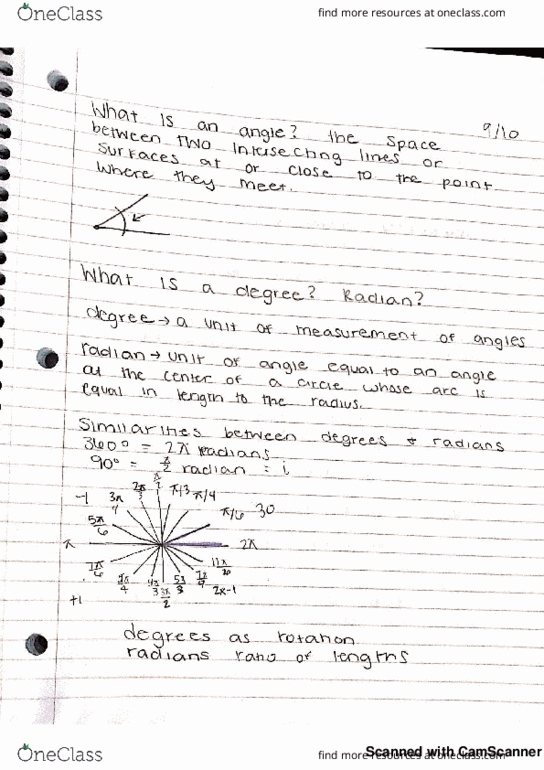 OneClass
find more resources at oneclass.com
9/10
What is an angle? the space
between two interseching lines or
Surfaces at or close to the point
where they meet.
What is a degree? Radian?
degree → a unit of measurement of angles
radian → unit of angle equal to an angle
at the center of a circle whose arc is
equal in length to the radius.
Similarities between degrees & radians
360° = 2π radians
90° = π/2 radian = i
-1 3π/4 2π/3 π/2 π/3 π/4
5π/6 π/6 30
π 2π
7π/6
5π/4 4π/3 3π/2 5π/3 7π/4 2π-1
+1
degrees as rotation
radians ratio of lengths
OneClass
find more resources at oneclass.com
Scanned with CamScanner